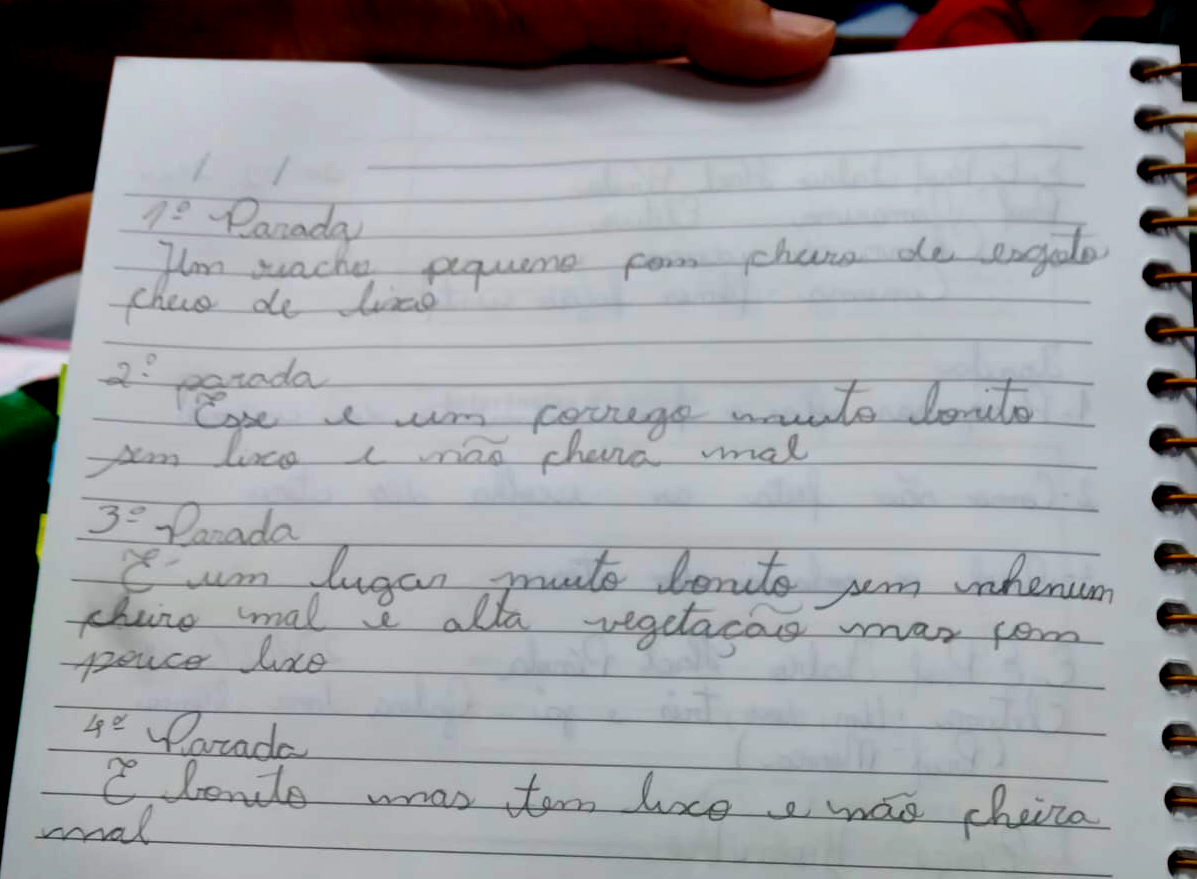 1º Parada
Um riacho pequeno com cheiro de esgoto
cheio de lixo
2º parada
Esse e um corrego muito bonito
sem lixo e não cheira mal
3º Parada
É um lugar muito bonito sem nhenum
cheiro mal e alta vegetação mas com
pouco lixo
4º Parada
É bonito mas tem lixo e não cheira
mal